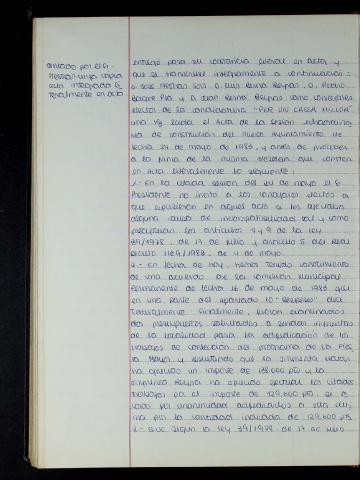 sentado por el Sr.
cuya copia
será integrada li-
teralmente en acta
entregó para su constancia literal en acta, y
que se transcribe íntegramente a continuación:
D. José Median Sors D. Luis Benná Beynas, D. Pedro
y D. Juan Benná Beynas como concejales
electos de la candidatura "PER UN CASSA MILLOR"
una vez leída el Acta de la sesión extraordina-
ria de constitución del nuevo Ayuntamiento de
fecha 24 de mayo de 1983, y antes de proceder
a la firma de la misma desean que consten
en Acta literalmente lo siguiente:
1.- En la citada sesión del 24 de mayo el Sr.
Presidente no invitó a los concejales electos a
que expusieran en aquel acto si les afectaba
alguna causa de incompatibilidad tal y como
preceptúan los artículos 7 y 9 de la ley
39/1978, de 17 de julio y artículo 5 del Real
Decreto 1169/1983, de 4 de mayo.
2.- En fecha de hoy, hemos tenido conocimiento
de una acuerdo de la comisión Municipal
Permanente de fecha 16 de mayo de 1983 que
en una parte del apartado 10 - "Despacho" dice
literalmente: Finalmente, fueron examinados
dos presupuestos solicitados a sendas imprentas
de la localidad para la adjudicación de los
trabajos de confección del programa de la Fiesta
Mayor y resultando que la imprenta
ha ofrecido un importe de 138.000 pts y la
imprenta ha ofrecido efectuar los citados
trabajos por el importe de 129.600 pts. se a-
cordó por unanimidad adjudicarlos a esta últi-
ma por la cantidad indicada de 129.600 pts
3.- Que según la ley 39/1978 de 17 de julio